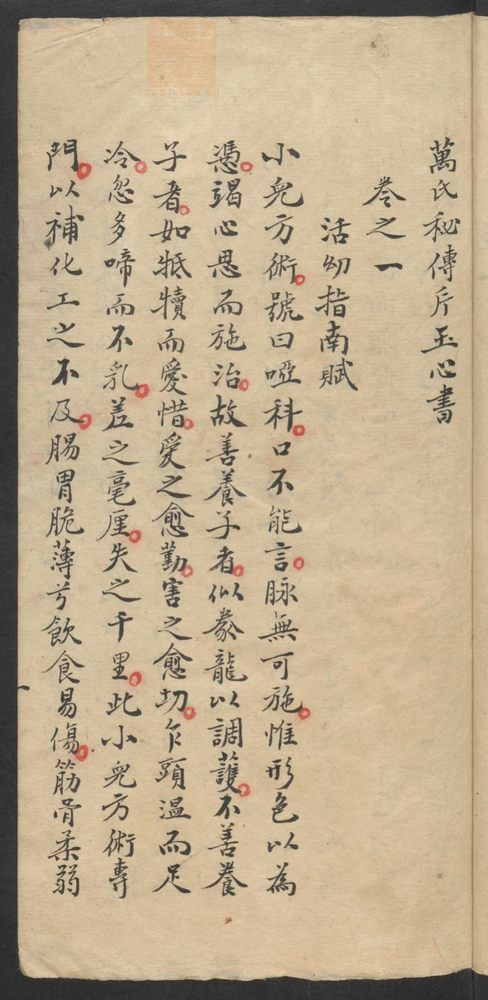 萬氏秘傳片玉心書
卷之一
活幼指南賦
小兒方術號曰啞科口不能言脉無可施惟形色以為
憑竭心思而施治故善養子者似豢龍以調護不善養
子者如牴犢而愛惜愛之愈勤害之愈切乍頭温而足
冷忽多啼而不乳差之毫厘失之千里此小兒方術專
門以補化工之不及腸胃脆薄兮飲食易傷筋骨柔弱